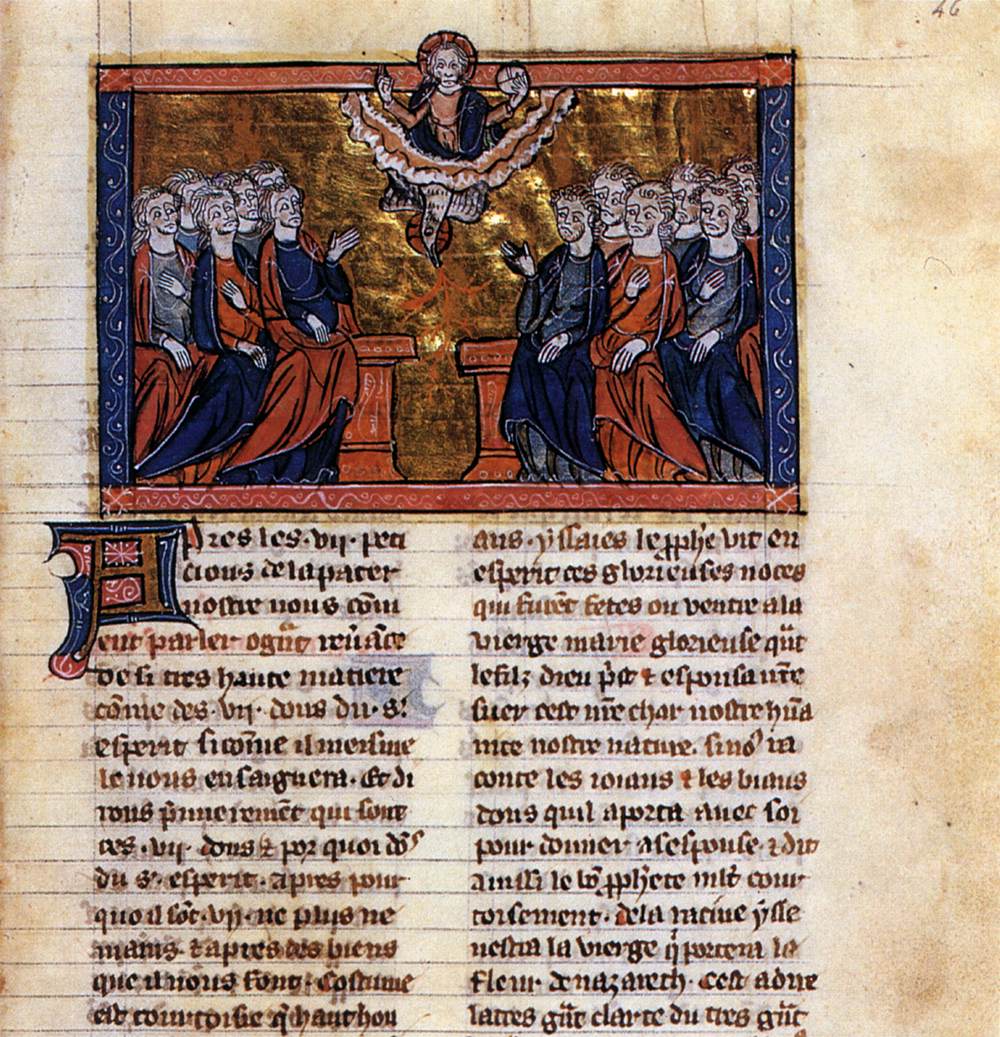 46
Apres les .vii. peti
cions de la pater
nostre nous cōui
ent parler o gñt reuāce
de si tres haute matiere
cōme des .vii. dons du .s.
esperit si cōme il meisme
le nous ensaignera. Et di
rons p̄mierement qui sont
ces .vii. dons & por quoi
du s. esperit. apres pour
quoi sōt .vii. ne plus ne
mains. & apres des biens
que il nous font. Costume
est courtoisie q̄ haut hou
ans. yssaies le pphe vit en
esperit ces glorieuses noces
qui furēt fetes ou ventre a la
vierge marie glorieuse q̄nt
le filz dieu p̄st & espousa nr̄e
suer cest nr̄e char nostre hūa
nite nostre nature. si nos ra
conte les ioians & les biaus
dons quil aporta auec soi
pour donner a sespouse. & dit
ainssi le bō pphete mlt cour
toisement. de la racine ysse
nestra la vierge q̄ portera la
fleur de nazareth. Cest a dire
lattes gñt clarte du tres gñt